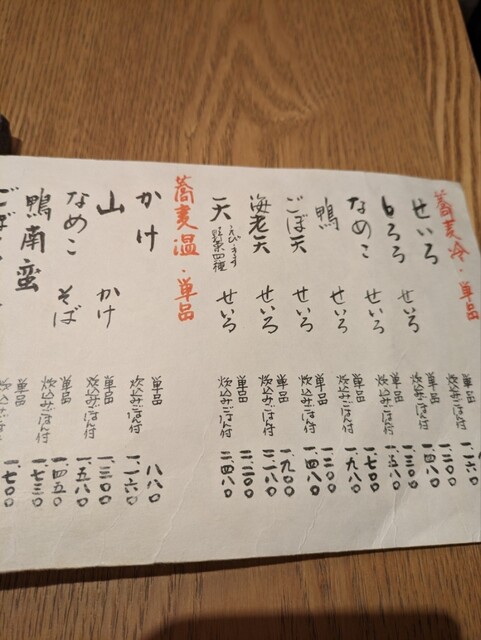 蕎麦冷・単品
せいろ
炊込みごはん付 一、一六〇
とろろ せいろ
単品 一、二〇〇
炊込みごはん付 一、四八〇
なめこ せいろ
単品 一、三〇〇
炊込みごはん付 一、五八〇
鴨 せいろ
単品 一、七〇〇
炊込みごはん付 一、九八〇
ごぼ天 せいろ
単品 一、二〇〇
炊込みごはん付 一、四八〇
海老天 せいろ
単品 一、九〇〇
炊込みごはん付 二、一八〇
天 せいろ
えび・きす
野菜四種
単品 二、二〇〇
炊込みごはん付 二、四八〇
蕎麦温・単品
かけ
単品 八八〇
炊込みごはん付 一、一六〇
山かけ
単品 一、三〇〇
炊込みごはん付 一、五八〇
なめこ そば
単品 一、四五〇
炊込みごはん付 一、七三〇
鴨南蛮
単品 一、七〇〇
ごぼ